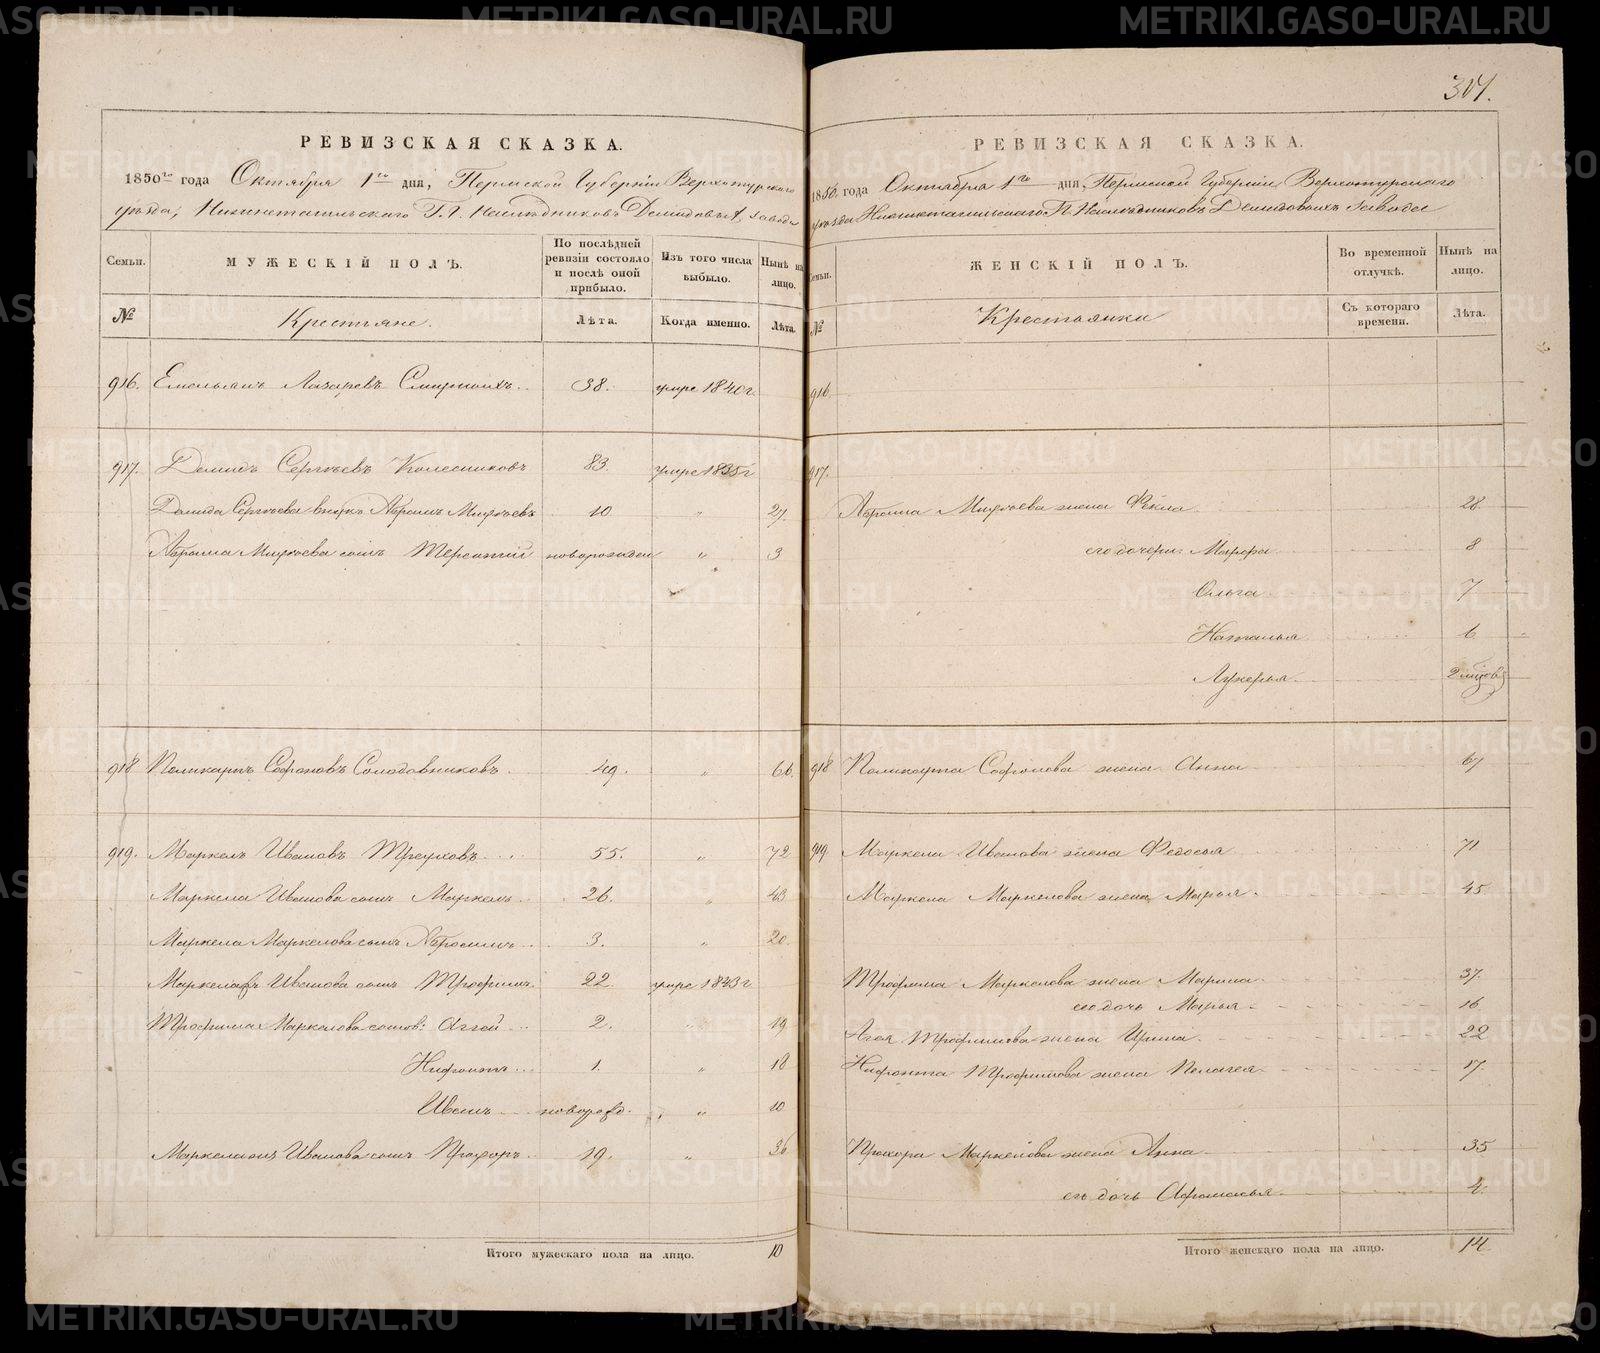 304.
РЕВИЗСКАЯ СКАЗКА.
1850го года Октября 1го дня, Пермской Губерніи Верхотурского
уѣзда, Нижнетагильского Г.Г. Наслѣдниковъ Демидовыхъ завода
Семьи.
МУЖЕСКІЙ ПОЛЪ.
По послѣдней ревизіи состояло и послѣ оной прибыло.
Изъ того числа выбыло.
Нынѣ на лицо.
№ Крестьяне. Лѣта. Когда именно. Лѣта.
916. Емельянъ Лазаревъ Смирныхъ. 38. умре 1840 г.
917. Демидъ Сергѣевъ Колесниковъ 83. умре 1835 г
Демида Сергѣева внукъ Абрамъ Михѣевъ 10 " 27
Абрама Михѣева сынъ Терентий новорожден " 3
918 Поликарпъ Софоновъ Солодовниковъ. 49. " 66.
919. Маркелъ Ивановъ Треуховъ 55. " 72
Маркела Иванова сынъ Маркелъ 26. " 43
Маркела Маркелова сынъ Абросимъ 3. " 20.
Маркела Иванова сынъ Трофимъ 22. умре 1843 г
Трофима Маркелова сынов: Аггей 2. " 19
Нифонтъ 1. " 18
Иванъ новорожд. " 10
Маркела Иванова сынъ Прохоръ 19. " 36
Итого мужескаго пола на лицо. 10
РЕВИЗСКАЯ СКАЗКА.
1850. года Октября 1го дня, Пермской Губерніи, Верхотурскаго
уѣзда Нижнетагильскаго Г.Г. Наслѣдниковъ Демидовыхъ завода
Семьи.
ЖЕНСКІЙ ПОЛЪ.
Во временной отлучкѣ.
Нынѣ на лицо.
№ Крестьянки Съ котораго времени. Лѣта.
916.
917.
Абрама Михѣева жена Фекла 28
его дочери: Марфа 8
Ольга 7
Наталья 6
Лукерья 2
918 Поликарпа Софонова жена Анна 67
919 Маркела Иванова жена Федосья 71
Маркела Маркелова жена Марья 45
Трофима Маркелова жена Марина 37.
его дочь Марья 16
Агея Трофимова жена Ирина 22
Нифонта Трофимова жена Пелагея 17
Прохора Маркелова жена Анна 35
его дочь Афанасья 4.
Итого женскаго пола на лицо. 14
METRIKI.GASO-URAL.RU